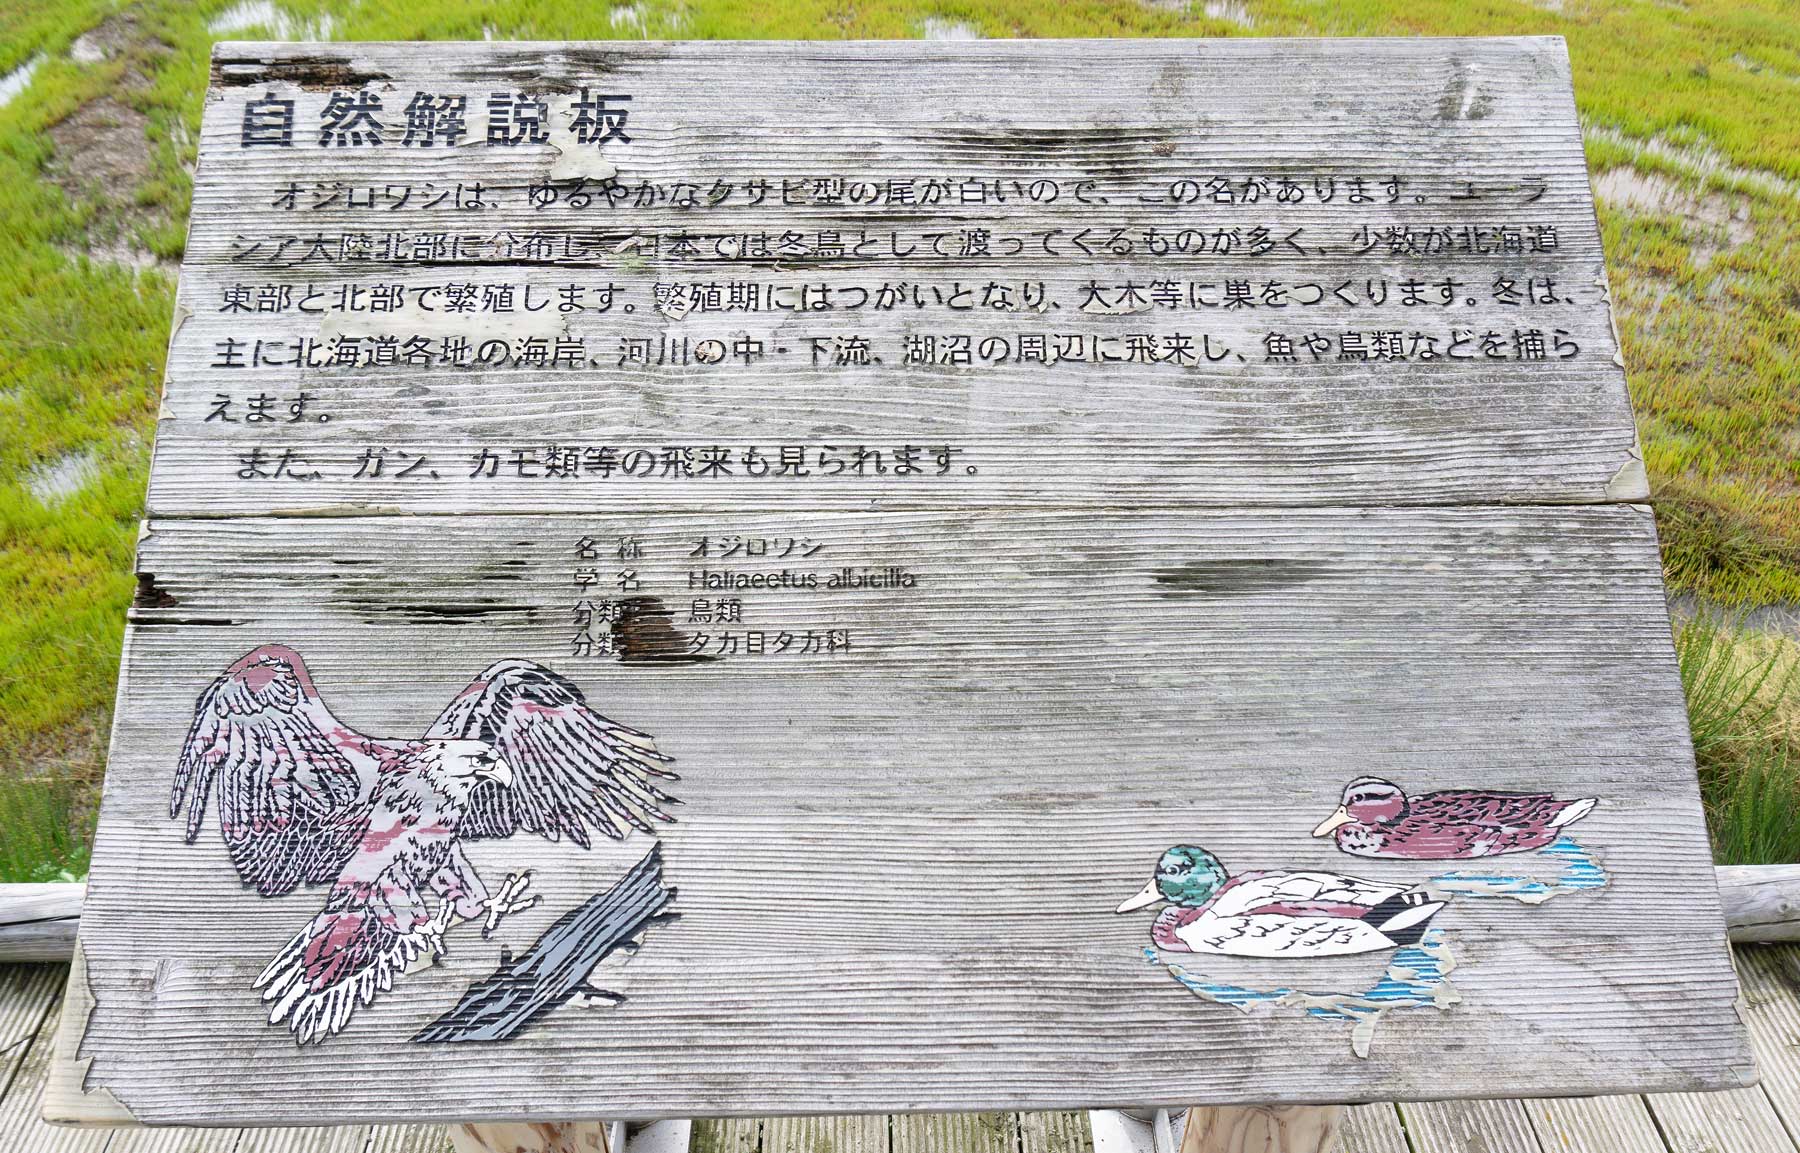 自然解説板
オジロワシは、ゆるやかなクサビ型の尾が白いので、この名があります。ユーラ
シア大陸北部に分布し、日本では冬鳥として渡ってくるものが多く、少数が北海道
東部と北部で繁殖します。繁殖期にはつがいとなり、大木等に巣をつくります。冬は、
主に北海道各地の海岸、河川の中・下流、湖沼の周辺に飛来し、魚や鳥類などを捕ら
えます。
また、ガン、カモ類等の飛来も見られます。
名 称 オジロワシ
学 名 Haliaeetus albicilla
分類 鳥類
分類 タカ目タカ科